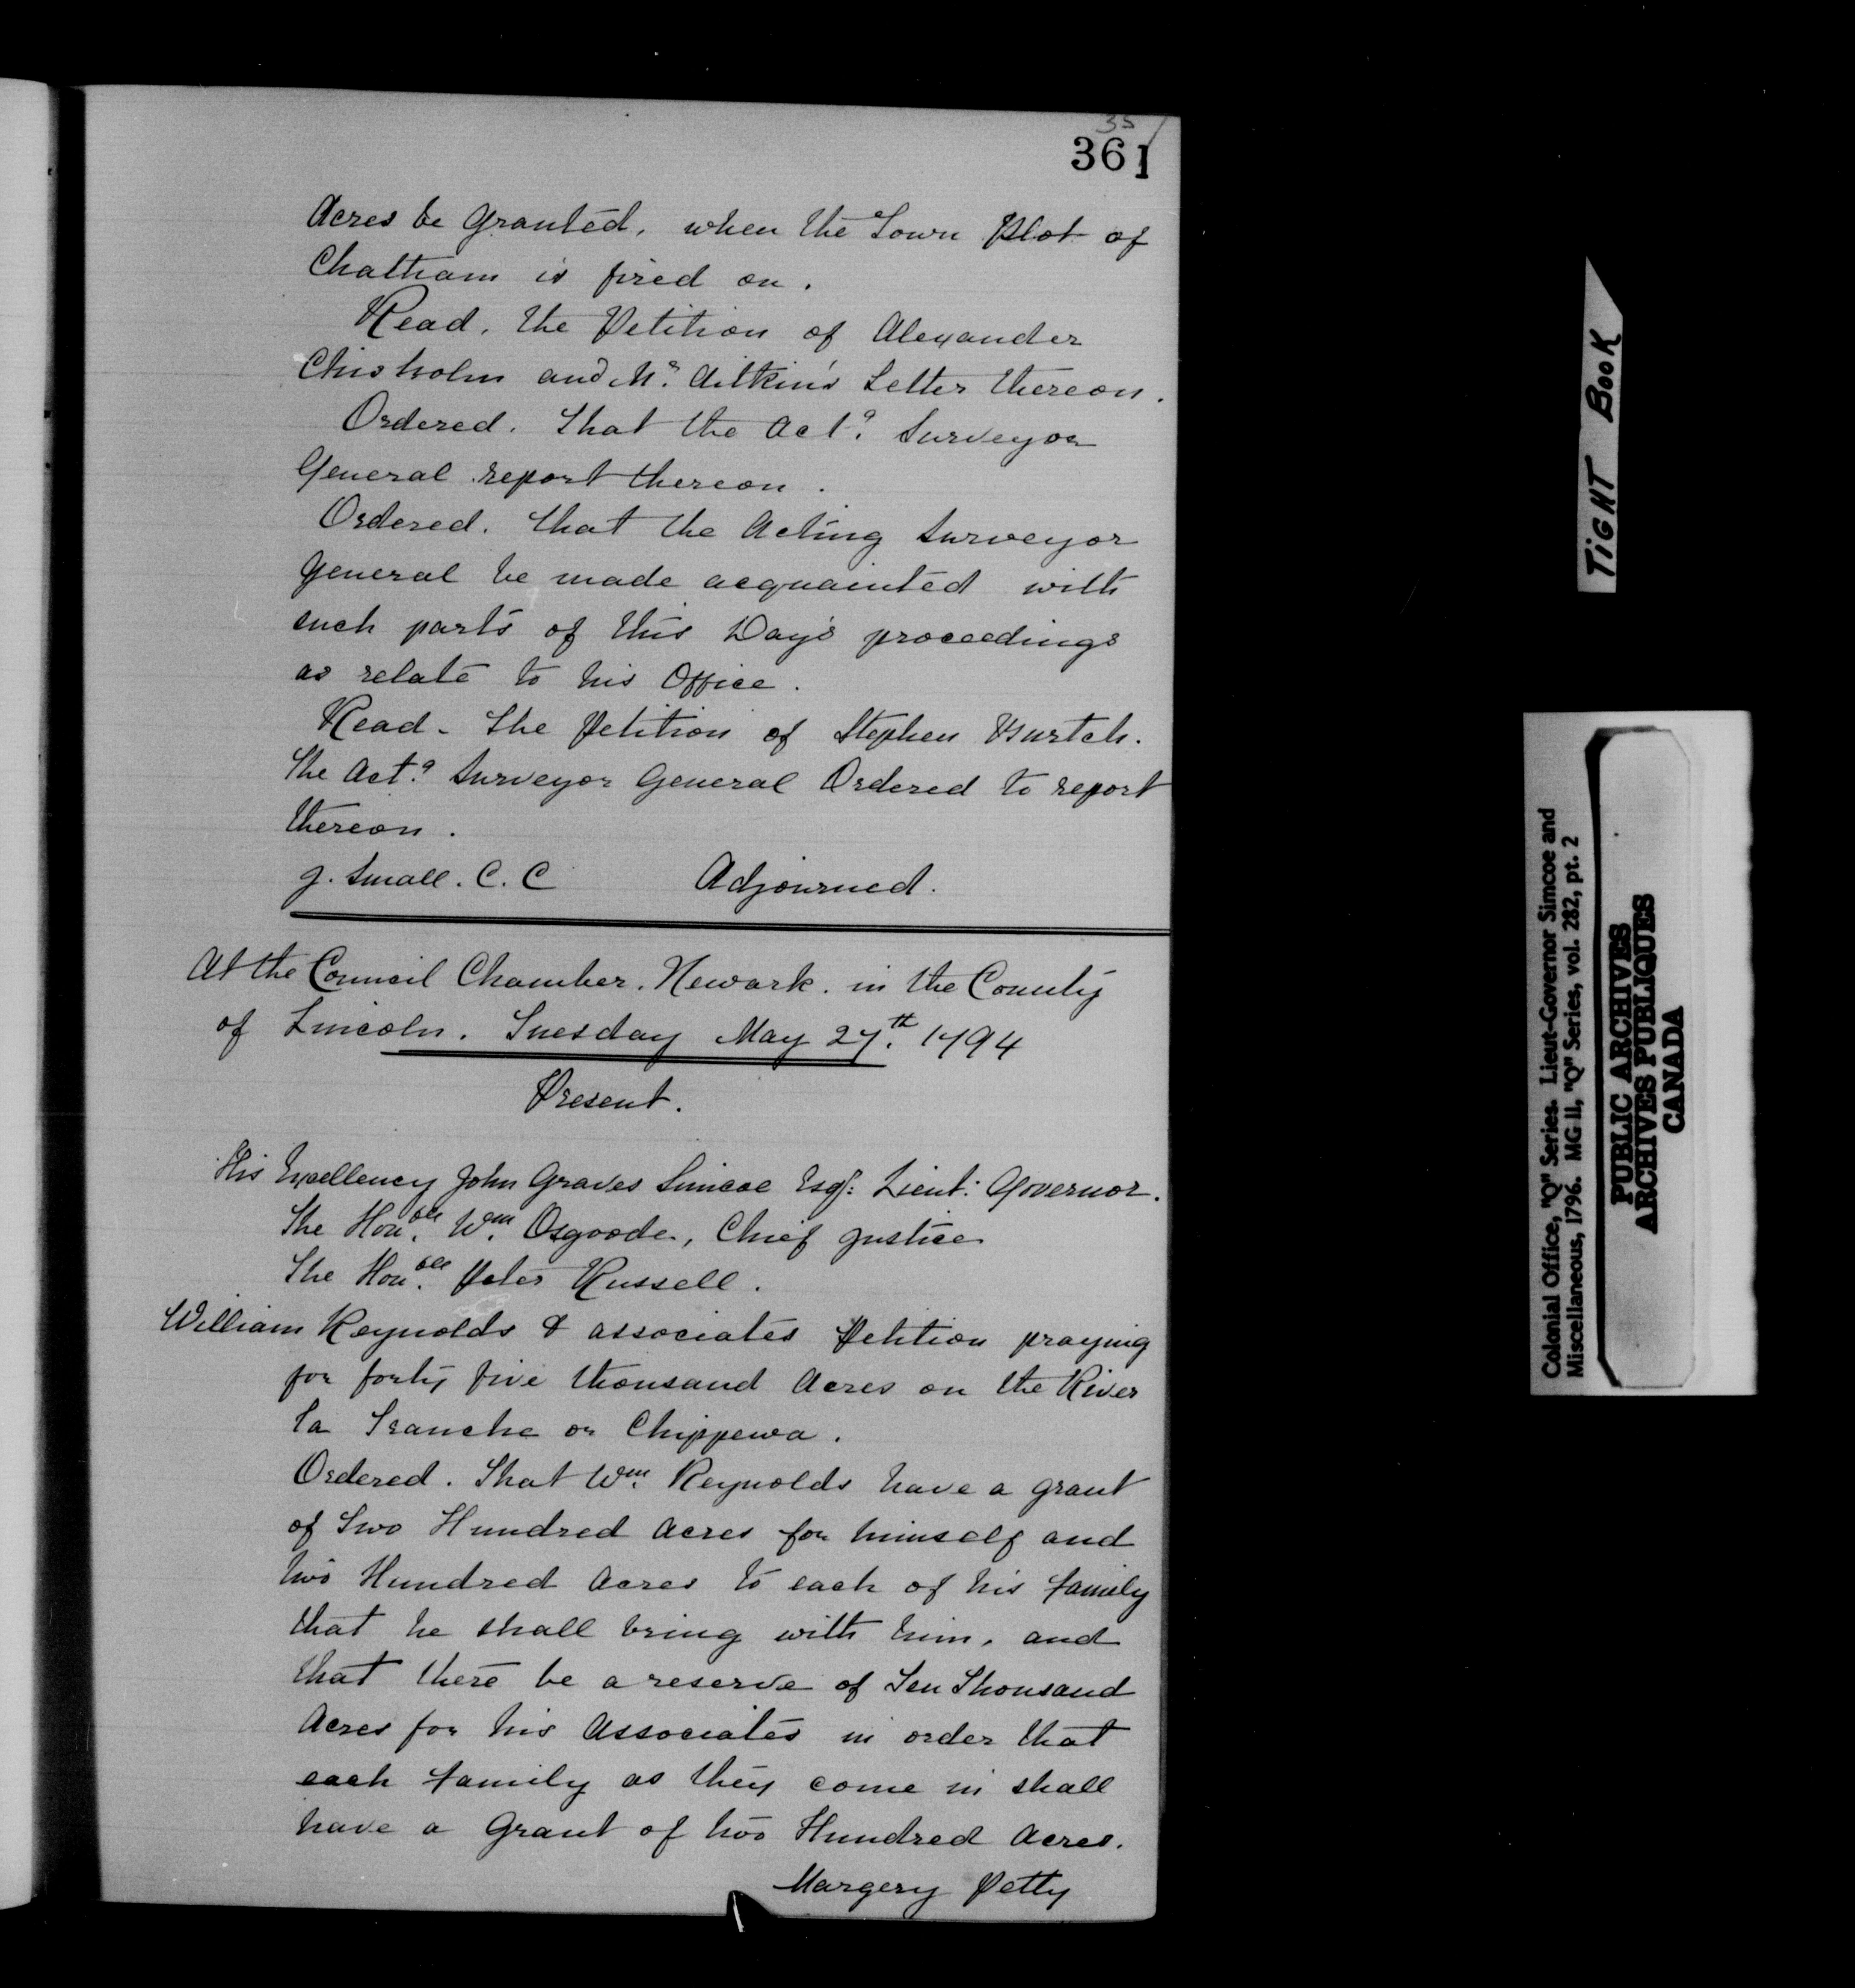 35
361
Acres be Granted, when the Town Plot of
Chatham is fixed on.
Read, the Petition of Alexander
Chisholm and Mr. Aitkin's Letter thereon.
Ordered. That the Actg. Surveyor
General report thereon.
Ordered. that the Acting Surveyor
General be made acquainted with
such parts of this Day's proceedings
as relate to his Office.
Read - The Petition of Stephen Burtch.
The Actg. Surveyor General Ordered to report
thereon.
J. Small. C. C Adjourned.
At the Council Chamber. Newark. in the County
of Lincoln. Tuesday May 27th. 1794
Present.
His Excellency John Graves Simcoe Esqr: Lieut: Governor.
The Honble. Wm. Osgoode, Chief Justice
The Honble. Peter Russell.
William Reynolds & associates Petition praying
for forty five thousand Acres on the River
La Tranche or Chippewa.
Ordered. That Wm. Reynolds have a grant
of Two Hundred Acres for himself and
two Hundred Acres to each of his family
that he shall bring with him, and
that there be a reserve of Ten Thousand
Acres for his Associates in order that
each family as they come in shall
have a Grant of two Hundred Acres.
Margery Petty
TIGHT BOOK
Colonial Office, "Q" Series. Lieut-Governor Simcoe and
Miscellaneous, 1796. MG 11, "Q" Series, vol. 282, pt. 2
PUBLIC ARCHIVES
ARCHIVES PUBLIQUES
CANADA